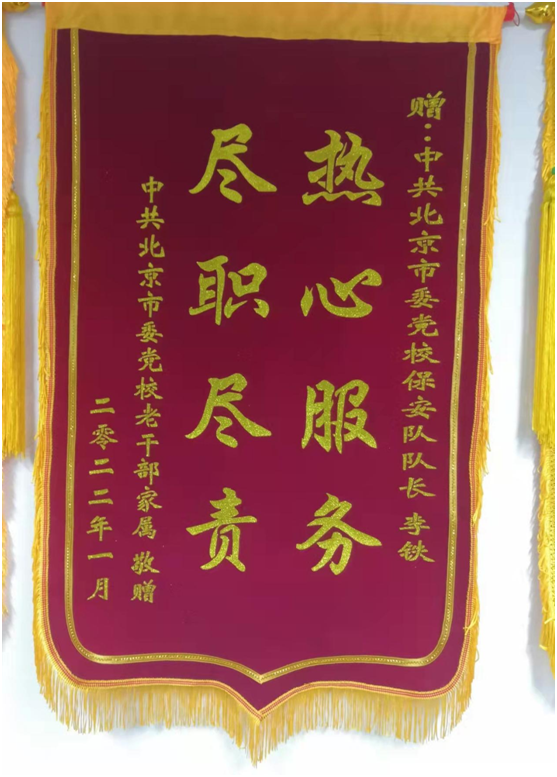 赠：中共北京市委党校保安队队长 李铁
热心服务
尽职尽责
中共北京市委党校老干部家属 敬赠
二零二二年一月